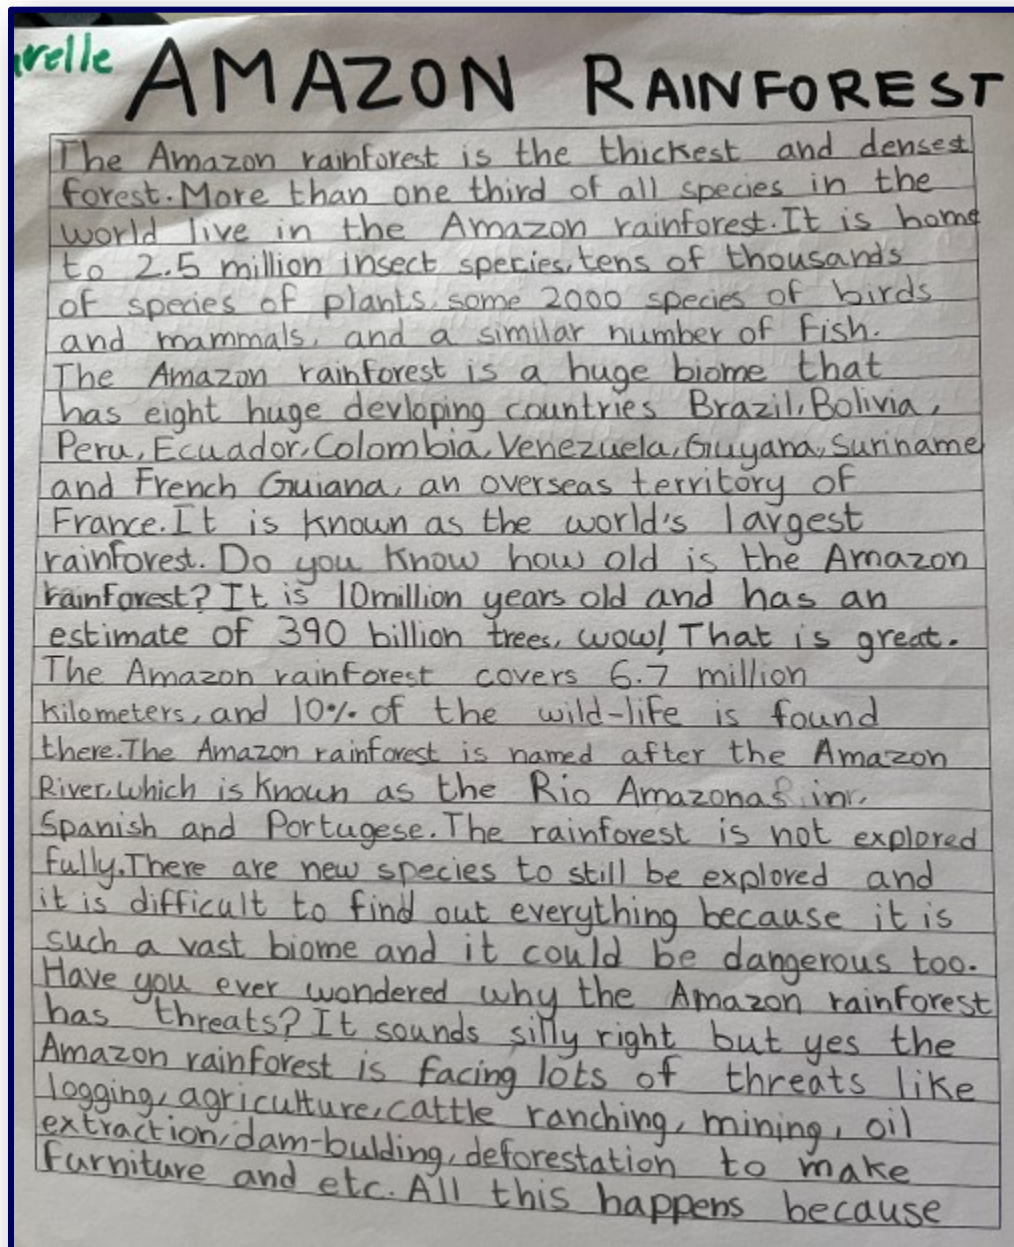 AMAZON RAINFOREST
The Amazon rainforest is the thickest and densest
forest. More than one third of all species in the
world live in the Amazon rainforest. It is home
to 2.5 million insect species, tens of thousands
of species of plants, some 2000 species of birds
and mammals, and a similar number of fish.
The Amazon rainforest is a huge biome that
has eight huge devloping countries Brazil, Bolivia,
Peru, Ecuador, Colombia, Venezuela, Guyana, Suriname
and French Guiana, an overseas territory of
France. It is known as the world's largest
rainforest. Do you know how old is the Amazon
rainforest? It is 10 million years old and has an
estimate of 390 billion trees, wow! That is great.
The Amazon rainforest covers 6.7 million
kilometers, and 10% of the wild-life is found
there. The Amazon rainforest is named after the Amazon
River, which is known as the Rio Amazonas in
Spanish and Portugese. The rainforest is not explored
fully. There are new species to still be explored and
it is difficult to find out everything because it is
such a vast biome and it could be dangerous too.
Have you ever wondered why the Amazon rainforest
has threats? It sounds silly right but yes the
Amazon rainforest is facing lots of threats like
logging, agriculture, cattle ranching, mining, oil
extraction, dam-bulding, deforestation to make
furniture and etc. All this happens because